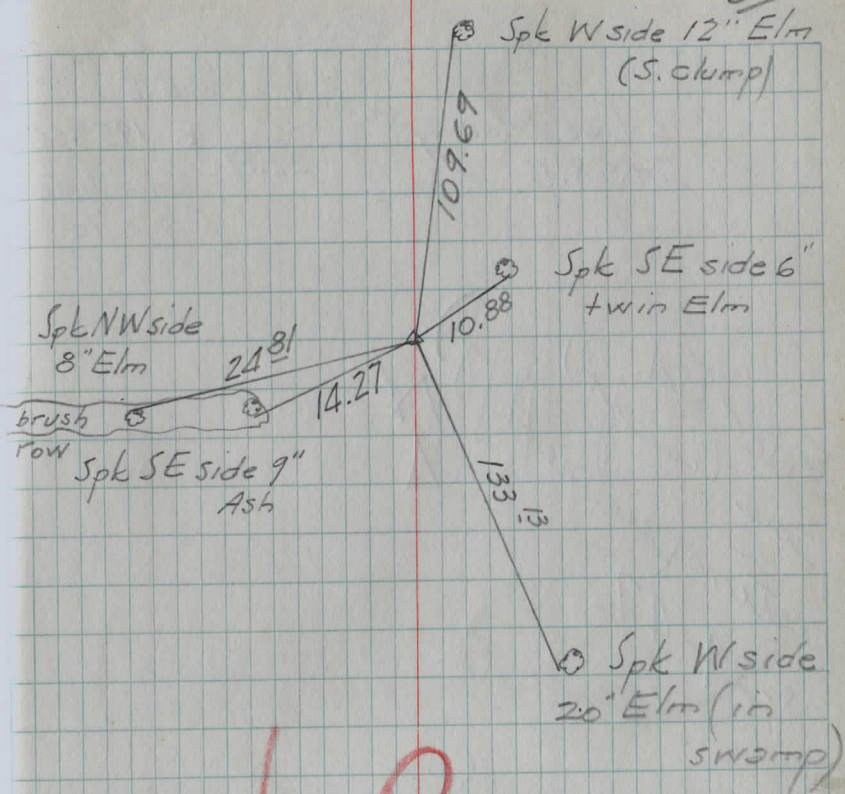 Spk W side 12" Elm
(S. clump)
109.69
Spk SE side 6"
twin Elm
10.88
Spk NW side
8" Elm
24 81
14.27
brush
row
Spk SE side 9"
Ash
133 13
Spk W side
20" Elm (in
swamp)